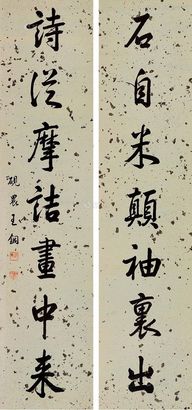 石自米顛袖裏出
詩從摩詰畫中来
硯農王錮